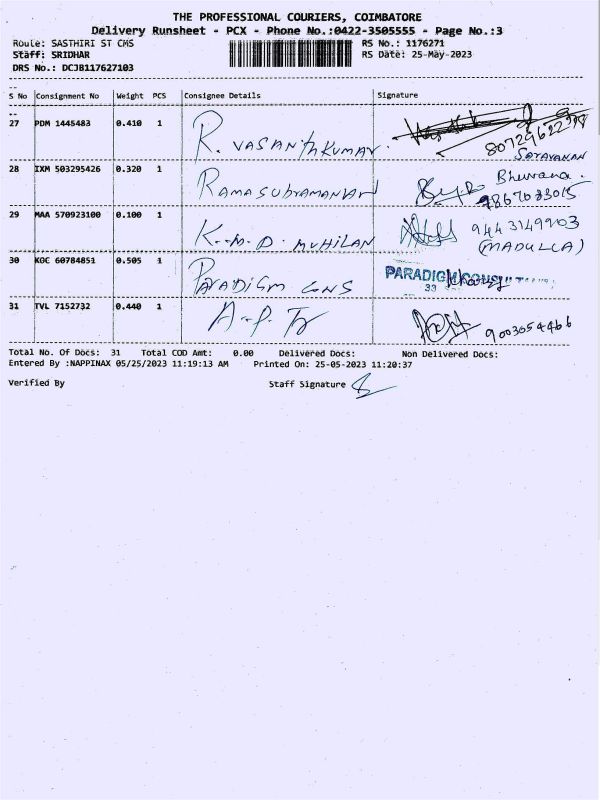 THE PROFESSIONAL COURIERS, COIMBATORE
Delivery Runsheet - PCX - Phone No.:0422-3505555 - Page No.:3
Route: SASTHIRI ST CMS RS No.: 1176271
Staff: SRIDHAR RS Date: 25-May-2023
DRS No.: DCJB117627103
S No Consignment No Weight PCS Consignee Details Signature
27 PDM 1445483 0.410 1 R. VASANTHKUMAR.
28 IXM 503295426 0.320 1 RAMASUBRAMANIAN Bhuvana.
29 MAA 570923100 0.100 1 K.M.D. MUHILAN 9443149903
(MADULLA)
30 KOC 60784851 0.505 1 PARADIGM CONS PARADIGM
33
31 TVL 7152732 0.440 1 9003054466
Total No. Of Docs: 31 Total COD Amt: 0.00 Delivered Docs: Non Delivered Docs:
Entered By :NAPPINAX 05/25/2023 11:19:13 AM Printed On: 25-05-2023 11:20:37
Verified By Staff Signature